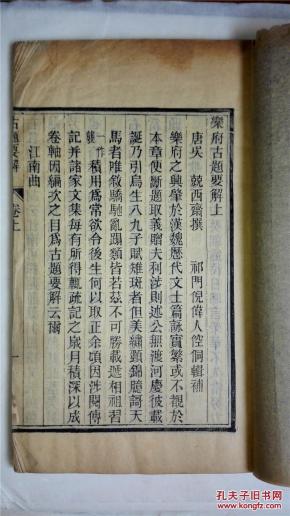 樂府古題要解上
唐 吳 兢西齋撰 祁門倪偉人倥侗輯補
樂府之興肇於漢魏歷代文士篇詠實繁或不覩於
本章便斷題取義贈夫利涉則述公無渡河慶彼載
誕乃引烏生八九子賦雉斑者但美繡頸錦臆謌天
馬者唯敘驕馳亂蹋類皆若茲不可勝載遞相祖習
一作襲積用爲常欲令後生何以取正余頃因涉閱傳
記并諸家文集每有所得輒疏記之歲月積深以成
卷軸因編次之目爲古題要解云爾
江南曲
古題要解 卷上 一
孔夫子旧书网